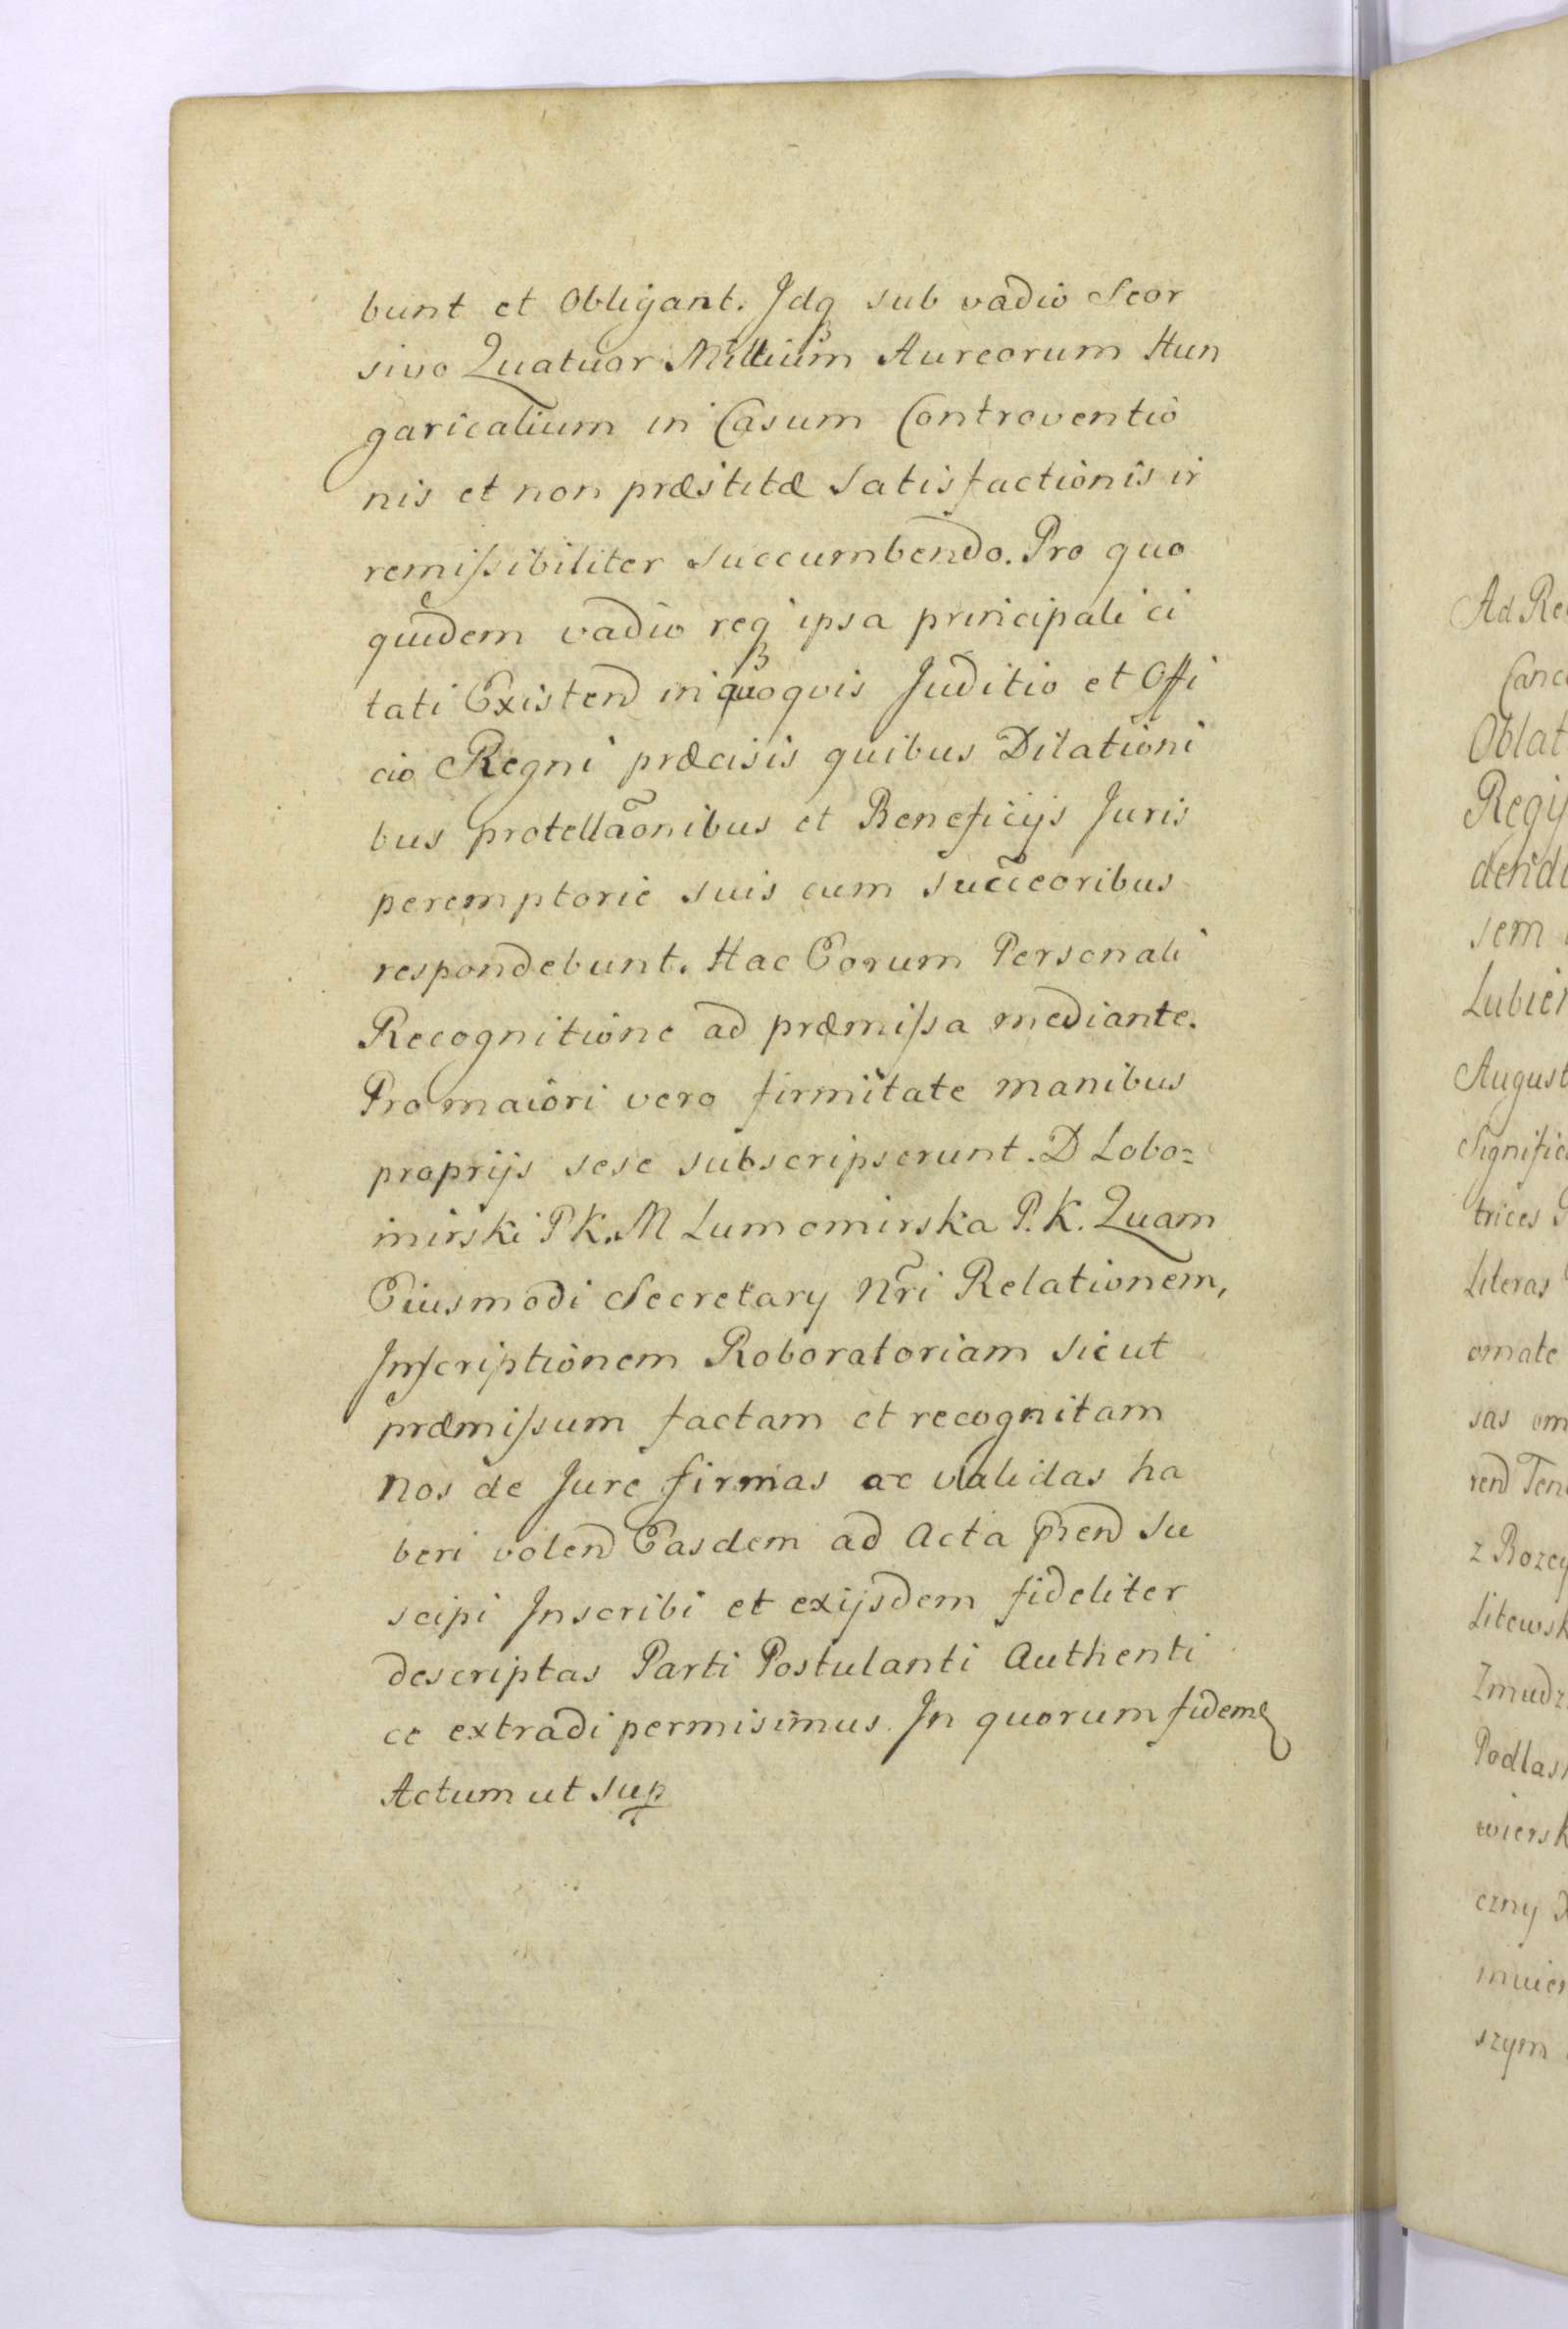 bunt et Obligant. Jdqꝫ sub vadio Seor
sivo Quatuor Millium Aureorum Hun
garicalium in Casum Controventio
nis et non præstitæ Satisfactionis ir
remissibiliter succumbendo. Pro quo
quidem vadio reqꝫ ipsa principali ci
tati Existend in quoqvis Juditio et Offi
cio Regni præcisis quibus Dilationi
bus protellãonibus et Beneficijs Juris
peremptorie suis cum succeoribus
respondebunt. Hac Eorum Personali
Recognitione ad præmissa mediante.
Pro maiori vero firmitate manibus
proprijs sese subscripserunt. D Lobo=
mirski P K. M Lumomirska P. K. Quam
Eiusmodi Secretary Nr̃i Relationem,
Inscriptionem Roboratoriam sicut
præmissum factam et recognitam
Nos de Jure firmas ac validas ha
beri volend Easdem ad Acta p̃rend Su
scipi Inscribi et exijsdem fideliter
descriptas Parti Postulanti Authenti
ce extradi permisimus. In quorum fidem
Actum ut sup
Ad Re
Canc
Oblat
Regij
dend
sem
Lubien
August
Signific
trices
Literas
ornate
sas om
rend Ten
z Rozcy
Litewsk
Zmudz
Podlas
wiersk
czny
inwier
szym